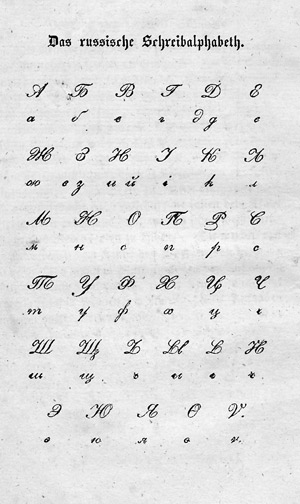 Das russische Schreibalphabeth.
А Б В Г Д Е
а б в г д g е
Ж З И І К Л
ж з з и й і к л
М Н О П Р С
м н о п р с
Т У Ф Х Ц Ч
т у ф х ц ч
Ш Щ Ъ Ы Ь Ѣ
ш щ ъ ы ь ѣ
Э Ю Я Ѳ Ѵ.
э ю я ѳ ѵ.